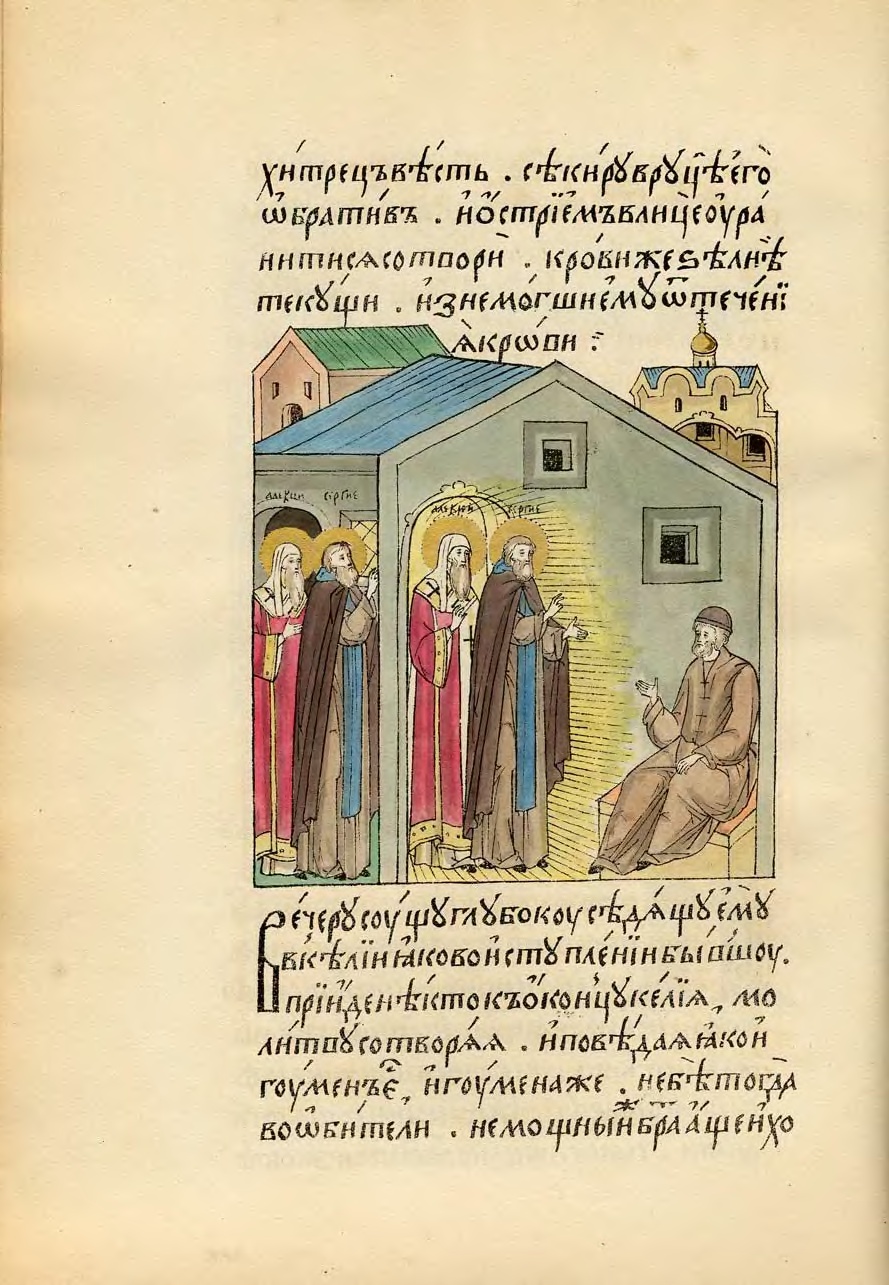 хи́трецъвѣ́сть . сѣки́рꙋврꙋцѣ̀єго̀
ѡ҆брати́въ . и҆ѻ҆стрїе́мъвлицѐоура
нитисѧсотворѝ . кро́вижеѕѣ́лнѣ
текꙋ́щи . и҆знемо́гшиє҆мꙋѿтече́нї
ѧ҆кро́ви ⁘
алекси сергие
алексии сергие
Ве́черꙋсоу́щꙋглꙋбокоу сѣдѧ́щꙋє҆мꙋ̀
вке́лїи ꙗ҆кововистꙋпле́нїибы́вшоу .
прїи́денѣ́ктокъѻ҆ко́нцꙋке́лїѧ , мо
ли́твꙋсотворѧ́ѧ . и҆повѣ́даѧꙗ҆кои
гоу́менъє҆̑ , и҆гоу́менаже . небѣ̀тогда̀
воѡ҆би́тели . немощны́йбра́ а҆́щеи҆хо